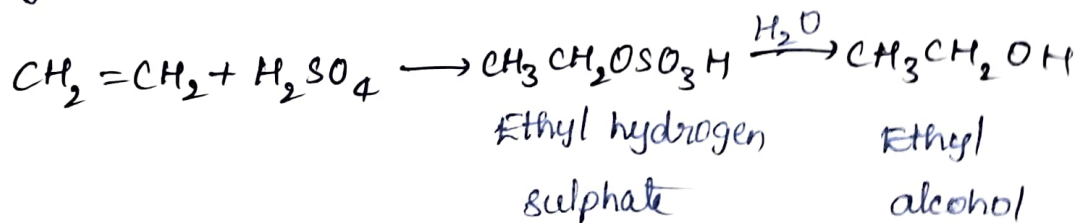 CH₂=CH₂ + H₂SO₄ ⟶ CH₃CH₂OSO₃H —H₂O→ CH₃CH₂OH
Ethyl hydrogen Ethyl
sulphate alcohol